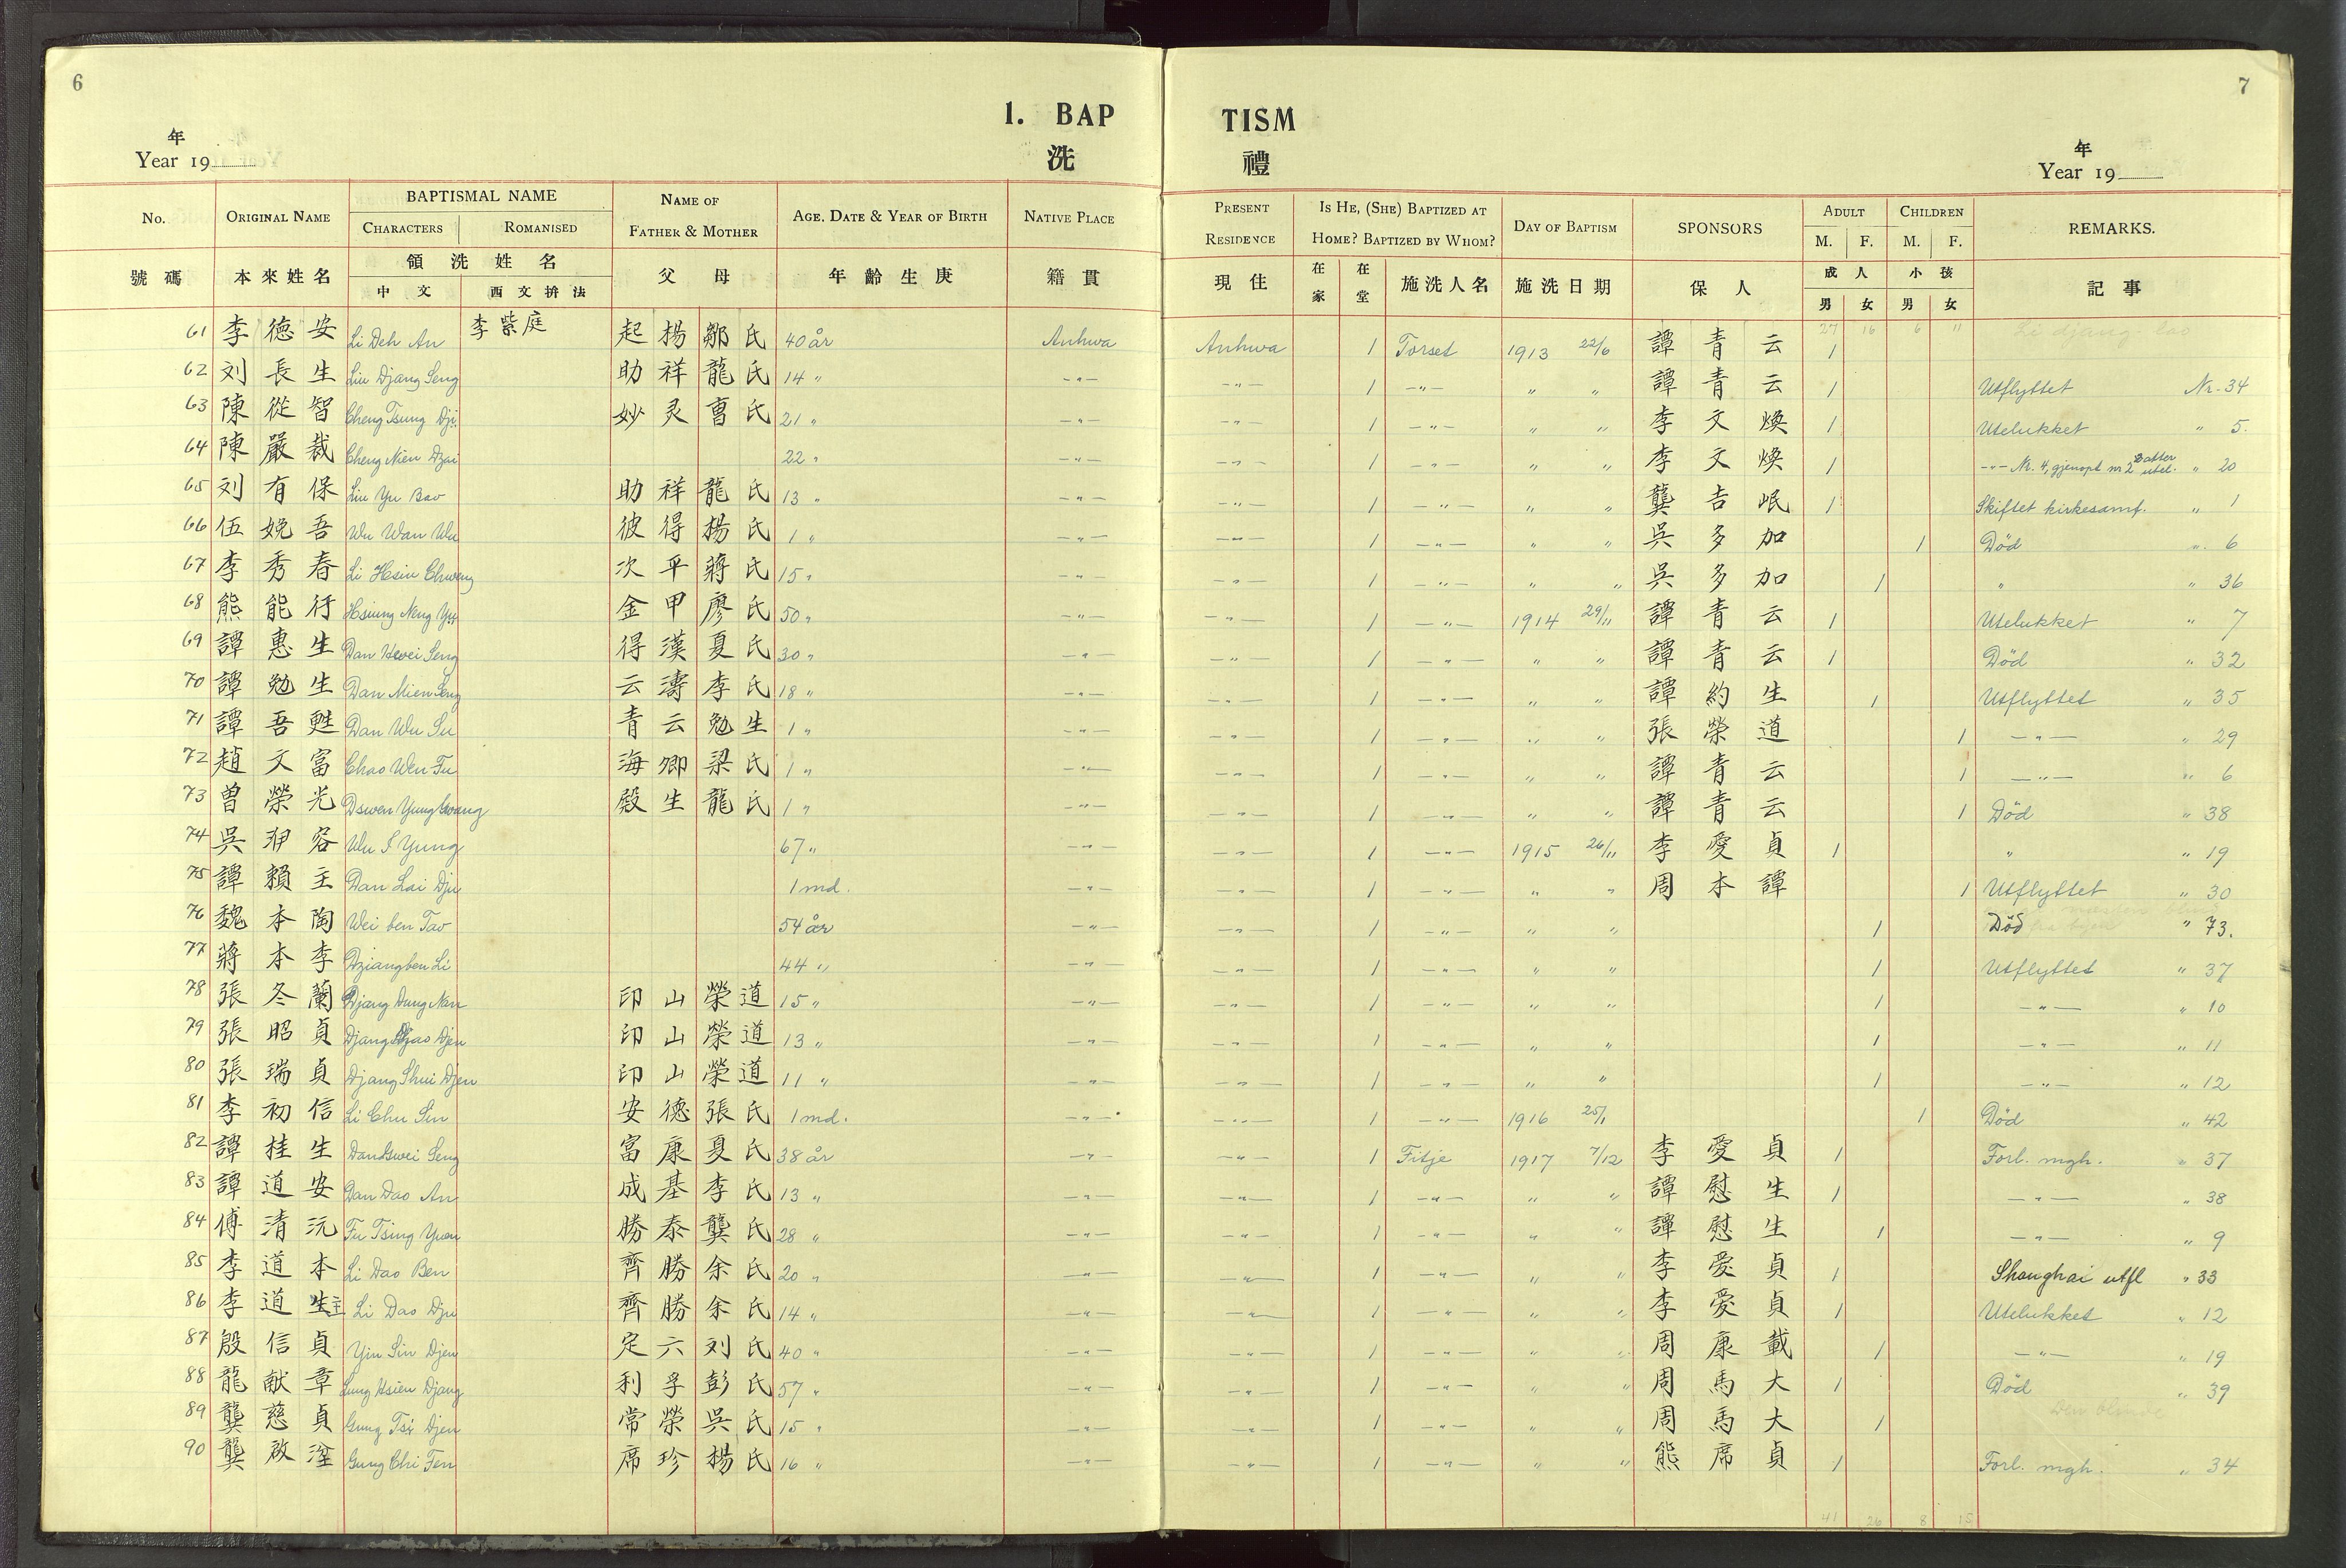 6
7
1. BAPTISM
洗 禮
年
Year 19
年
Year 19
No. ORIGINAL NAME BAPTISMAL NAME CHARACTERS ROMANISED NAME OF FATHER & MOTHER AGE, DATE & YEAR OF BIRTH NATIVE PLACE PRESENT RESIDENCE IS HE, (SHE) BAPTIZED AT HOME? BAPTIZED BY WHOM? DAY OF BAPTISM SPONSORS ADULT M. F. CHILDREN M. F. REMARKS.
號碼 本來姓名 領洗姓名 中文 西文拚法 父母 年齡生庚 籍貫 現住 在家 在堂 施洗人名 施洗日期 保人 成人 男 女 小孩 男 女 記事
27 16 6 11
61 李德安 Li Deh An 李紫庭 起楊鄒氏 40 år Anhwa Anhwa 1 Torset 1913 22/6 譚青云 1
62 刘長生 Liu Djang Seng 助祥龍氏 14 " -"- -"- 1 -"- " " 譚青云 1 Utflyttet Nr. 34
63 陳從智 Cheng Tsung Dji 妙灵曹氏 21 " -"- -"- 1 -"- " " 李文煥 1 Utelukket " 5.
64 陳嚴裁 Cheng Nien Dzai 22 " -"- -"- 1 -"- " " 李文煥 1 -"- Nr. 4, gjenopt nr 2 atter utel. " 20
65 刘有保 Liu Yu Bao 助祥龍氏 13 " -"- -"- 1 -"- " " 龔吉岷 1 Skiftet kirkesamf. " 1
66 伍娩吾 Wu Wan Wu 彼得楊氏 1 " -"- -"- 1 -"- " " 吳多加 1 Död " 6
67 李秀春 Li Hsiu Chweng 次平蔣氏 15 " -"- -"- 1 -"- " " 吳多加 1 " " 36
68 熊能行 Hsiung Neng Yu 金甲廖氏 50 " -"- -"- 1 -"- 1914 29/11 譚青云 1 Utelukket " 7
69 譚惠生 Dan Hwei Seng 得漢夏氏 30 " -"- -"- 1 -"- " " 譚青云 1 Död " 32
70 譚勉生 Dan Mien Seng 云濤李氏 18 " -"- -"- 1 -"- " " 譚約生 1 Utflyttet " 35
71 譚吾甦 Dan Wu Su 青云勉生 1 " -"- -"- 1 -"- " " 張榮道 1 -"- " 29
72 趙文富 Chao Wen Fu 海卿梁氏 1 " -"- -"- 1 -"- " " 譚青云 1 -"- " 6
73 曾榮光 Dswen Yung Gwang 殿生龍氏 1 " -"- -"- 1 -"- " " 譚青云 1 Död " 38
74 吳 容 Wu I Yung 67 " -"- -"- 1 -"- 1915 26/11 李愛貞 1 " " 19
75 譚賴主 Dan Lai Dju 1 md. -"- -"- 1 -"- " " 周本譚 1 Utflyttet " 30
76 魏本陶 Wei ben Tao 54 år -"- -"- 1 -"- " " 1 Död " 73.
77 蔣本李 Dziang ben Li 44 " -"- -"- 1 -"- " " 1 Utflyttet " 37
78 張冬蘭 Djang Dung Nan 印山榮道 15 " -"- -"- 1 -"- " " 1 -"- " 10
79 張昭貞 Djang Djao Djen 印山榮道 13 " -"- -"- 1 -"- " " 1 -"- " 11
80 張瑞貞 Djang Shui Djen 印山榮道 11 " -"- -"- 1 -"- " " 1 -"- " 12
81 李初信 Li Chu Sin 安德張氏 1 md. -"- -"- 1 -"- 1916 25/1 1 Död " 42
82 譚桂生 Dan Gwei Seng 富康夏氏 38 år -"- -"- 1 Fitje 1917 7/12 李愛貞 1 Forl. mgh. " 37
83 譚道安 Dan Dao An 成基李氏 13 " -"- -"- 1 -"- " " 譚慰生 1 -"- " 38
84 傅清沅 Fu Tsing Yuen 勝泰龔氏 28 " -"- -"- 1 -"- " " 譚慰生 1 -"- " 9
85 李道本 Li Dao Ben 齊勝余氏 20 " -"- -"- 1 -"- " " 李愛貞 1 Shanghai utfl " 33
86 李道生主 Li Dao Dju 齊勝余氏 14 " -"- -"- 1 -"- " " 李愛貞 1 Utelukket " 12
87 殷信貞 Yin Sin Djen 定六刘氏 40 " -"- -"- 1 -"- " " 周康載 1 -"- " 19
88 龍献章 Lung Hsien Djang 利孚彭氏 57 " -"- -"- 1 -"- " " 周馬大 1 Död " 39
89 龔慈貞 Gung Tsï Djen 常榮吳氏 15 " -"- -"- 1 -"- " " 周馬大 1
90 龔啟 Gung Chi Fen 席珍楊氏 16 " -"- -"- 1 -"- " " 熊席貞 1 Forl. mgh. " 34
41 26 8 15